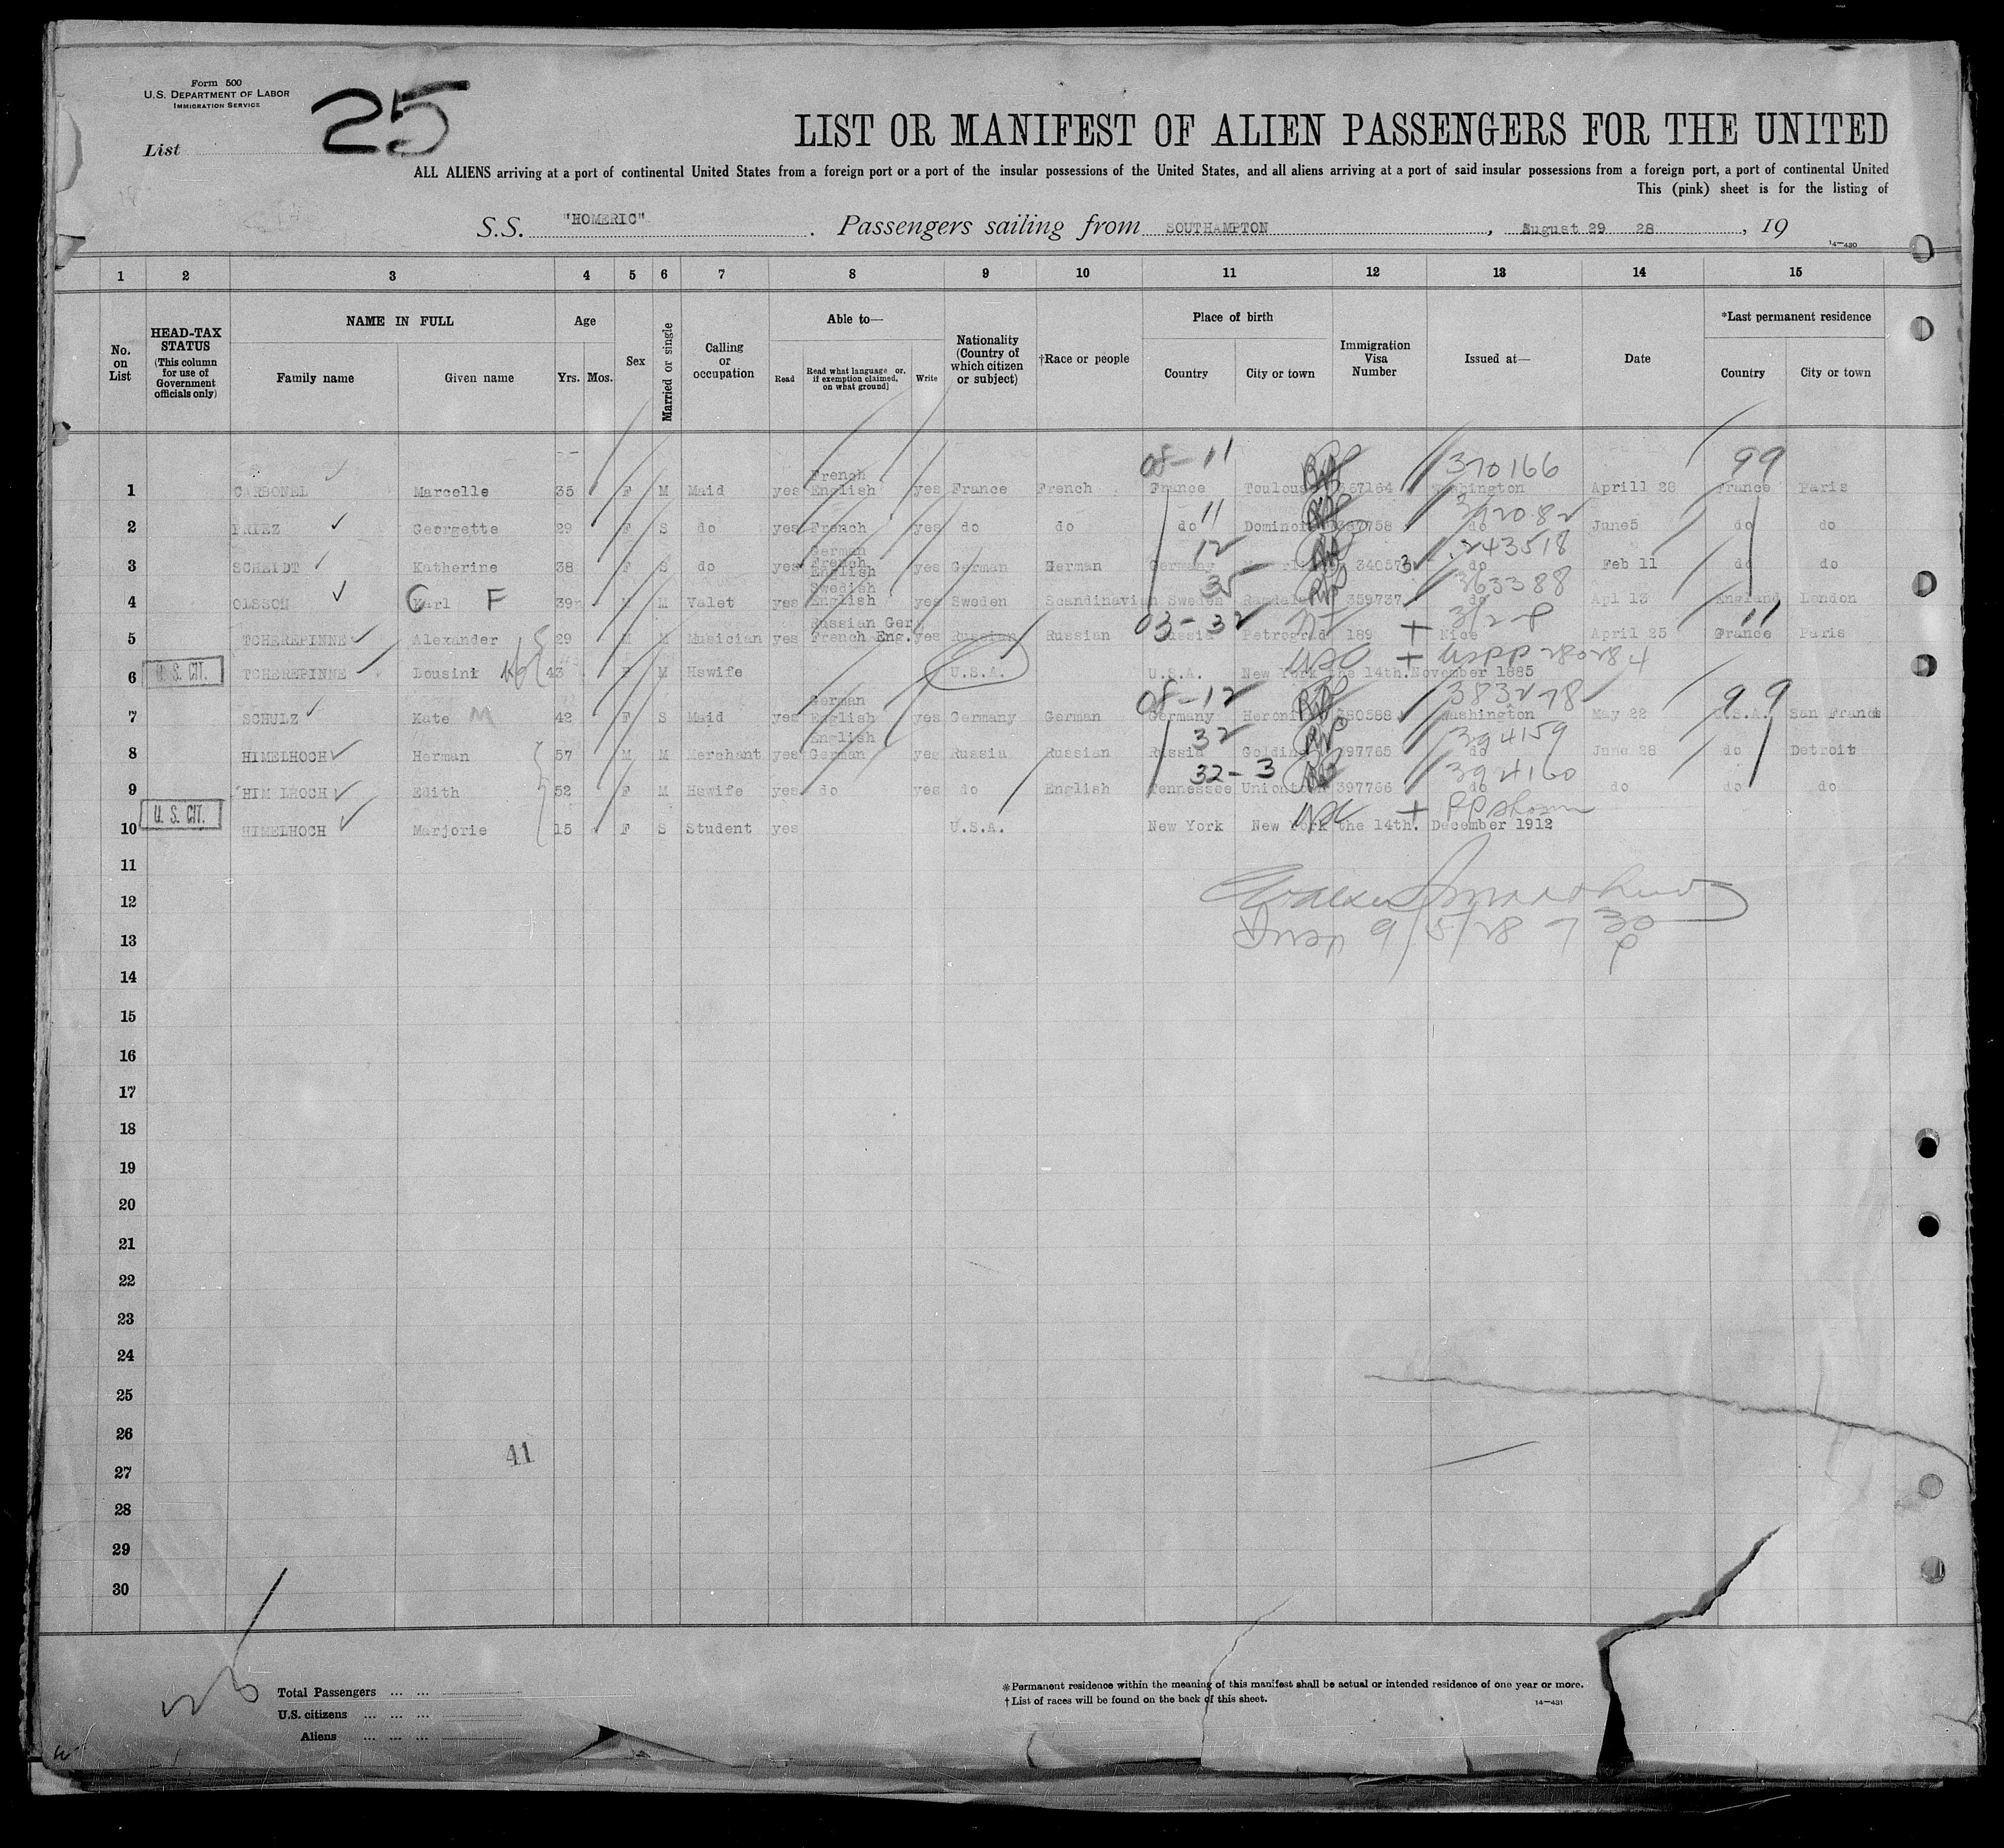 Form 500
U.S. DEPARTMENT OF LABOR
IMMIGRATION SERVICE
List 25
LIST OR MANIFEST OF ALIEN PASSENGERS FOR THE UNITED
ALL ALIENS arriving at a port of continental United States from a foreign port or a port of the insular possessions of the United States, and all aliens arriving at a port of said insular possessions from a foreign port, a port of continental United
This (pink) sheet is for the listing of
S.S. "HOMERIC". Passengers sailing from SOUTHAMPTON, August 29 28, 19
14—430
1 2 3 4 5 6 7 8 9 10 11 12 13 14 15
No. on List
HEAD-TAX STATUS (This column for use of Government officials only)
NAME IN FULL Family name Given name
Age Yrs. Mos.
Sex
Married or single
Calling or occupation
Able to— Read Read what language or, if exemption claimed, on what ground] Write
Nationality (Country of which citizen or subject)
†Race or people
Place of birth Country City or town
Immigration Visa Number
Issued at—
Date
*Last permanent residence Country City or town
08-11 370166 99
French
1 CARBONEL Marcelle 35 F M Maid yes English yes France French France Washington Aprill 28 France Paris
11
2 PRIEZ Georgette 29 F S do yes French yes do do do do June5 do do
German
12 243518
French
3 SCHEIDT Katherine 38 F S do yes English yes German German Germany 340573 do Feb 11 do do
Swedish
35 363388
4 OLSSON Carl F 39 M M Valet yes English yes Sweden Scandinavian Sweden 359737 do Apl 13 England London
Russian Ger
03-32 11
5 TCHEREPINNE Alexander 29 M M Musician yes French Eng. yes Russian Russian Russia Petrograd 189 + Nice April 25 France Paris
U. S. CIT.
6 TCHEREPINNE Lousini 43 F M Hswife U.S.A. U.S.A. New York the 14th.November 1885
08-12 383278 99
German
7 SCHULZ Kate M 42 F S Maid yes English yes Germany German Germany 380588 Washington May 22 U.S.A. San Franci
English
32 394159
8 HIMELHOCH Herman 57 M M Merchant yes German yes Russia Russian Russia 397765 do June 28 do Detroit
32-3 394160
9 HIM LHOCH Edith 52 F M Hswife yes do yes do English Tennessee Uniontown 397766 do do do do
U. S. CIT.
10 HIMELHOCH Marjorie 15 F S Student yes U.S.A. New York New York the 14th. December 1912
11
12
13 9/5/28 7 30 P
14
15
16
17
18
19
20
21
22
23
24
25
26
41
27
28
29
30
Total Passengers ... ...
U.S. citizens ... ... ...
Aliens ... ... ...
*Permanent residence within the meaning of this manifest shall be actual or intended residence of one year or more.
†List of races will be found on the back of this sheet.
14—431